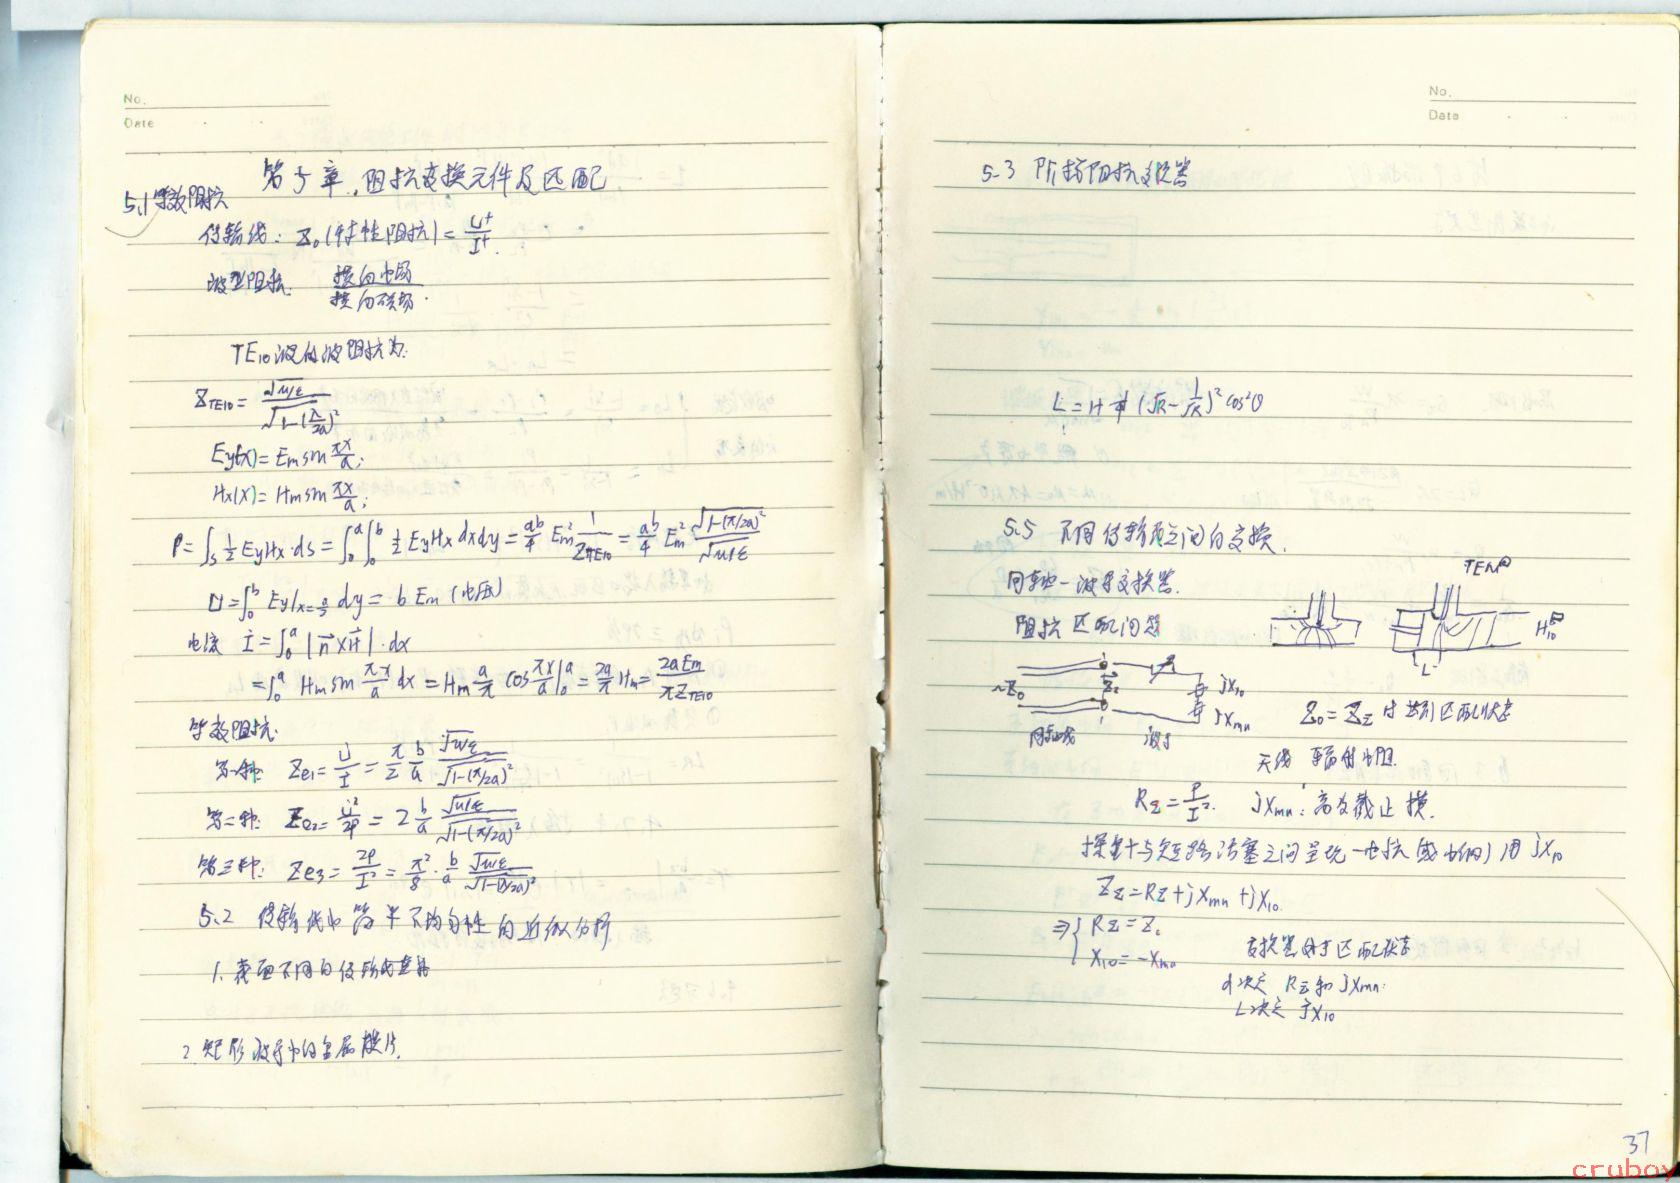 No.
Date
第5章、阻抗变换元件及匹配
5.1 等效阻抗
传输线: Z₀(特性阻抗)=U⁺/I⁺.
波型阻抗 横向电场/横向磁场.
TE₁₀波的波阻抗为:
Z_TE10 = √μ/ε / √1-(λ/2a)²
Ey(x)=Em sin πx/a;
Hx(x)=Hm sin πx/a;
P=∫s ½ EyHx·ds=∫₀ᵃ∫₀ᵇ ½ EyHx dxdy = ab/4 Em² 1/Z_TE10 = ab/4 Em² √1-(λ/2a)² / √μ/ε
U=∫₀ᵇ Ey|x=a/2 dy= b Em (电压)
电流 I=∫₀ᵃ |n×H|·dx
=∫₀ᵃ Hm sin πx/a dx = Hm a/π cos πx/a |₀ᵃ = 2a/π Hm = 2aEm/πZ_TE10
等效阻抗:
第一种: Ze1= U/I = π/2 b/a √μ/ε / √1-(λ/2a)²
第二种: Ze2= U²/2P = 2 b/a √μ/ε / √1-(λ/2a)²
第三种: Ze3= 2P/I² = π²/8 · b/a √μ/ε / √1-(λ/2a)²
5.2 传输线中简单不均匀性的近似分析
1.
2 矩形波导中的金属膜片.
No.
Date
5.3 阶梯阻抗变换器
L=1+ ¼ (√R - 1/√R)² cos²θ
5.5 不同传输线之间的变换.
同轴-波导变换器.
阻抗匹配问题
TEM
H₁₀
L
~Z₀
Z_Σ
jX₁₀
jXmn
同轴线
波导
Z₀=Z_Σ 时 达到匹配状态
天线 辐射电阻
R_Σ = P/I². jXmn: 高次截止模.
探针与短路活塞之间呈现一电抗(或电纳)用jX₁₀
Z_Σ=R_Σ+jXmn+jX₁₀.
⇒{ R_Σ=Z₀
X₁₀=-Xmn
变换器处于匹配状态
d决定 R_Σ和jXmn.
L决定 jX₁₀
37
cruboy